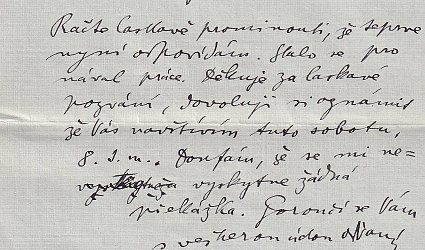 Račte laskavě prominouti, že teprve
nyní odpovídám. Stalo se pro
nával práce. Děkuje za laskavé
pozvání, dovoluji si oznámit
že Vás navštívím tuto sobotu,
8. t. m.. Doufám, že se mi ne-
vyskytne žádná
překážka. Poroučí se Vám
s veškerou úctou oddaný